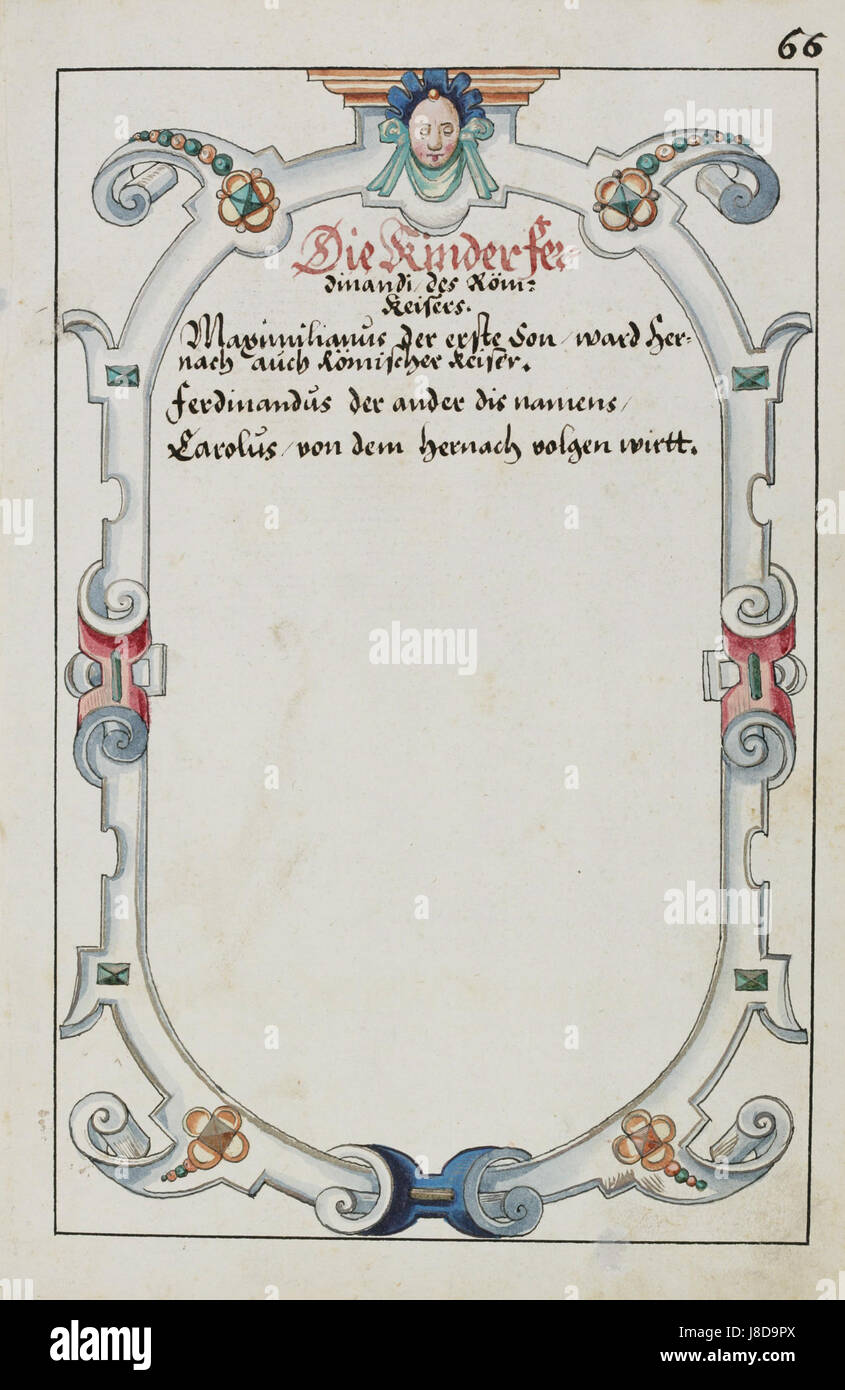 66
Die Kinder Fer-
dinandi, des Röm:
Keisers.
Maximilianus der erste Son, ward Her-
nach auch Römischer Keiser.
Ferdinandus der ander dis namens,
Carolus, von dem hernach volgen wirtt.
alamy
alamy stock photo
Image ID: J8D9PX
www.alamy.com